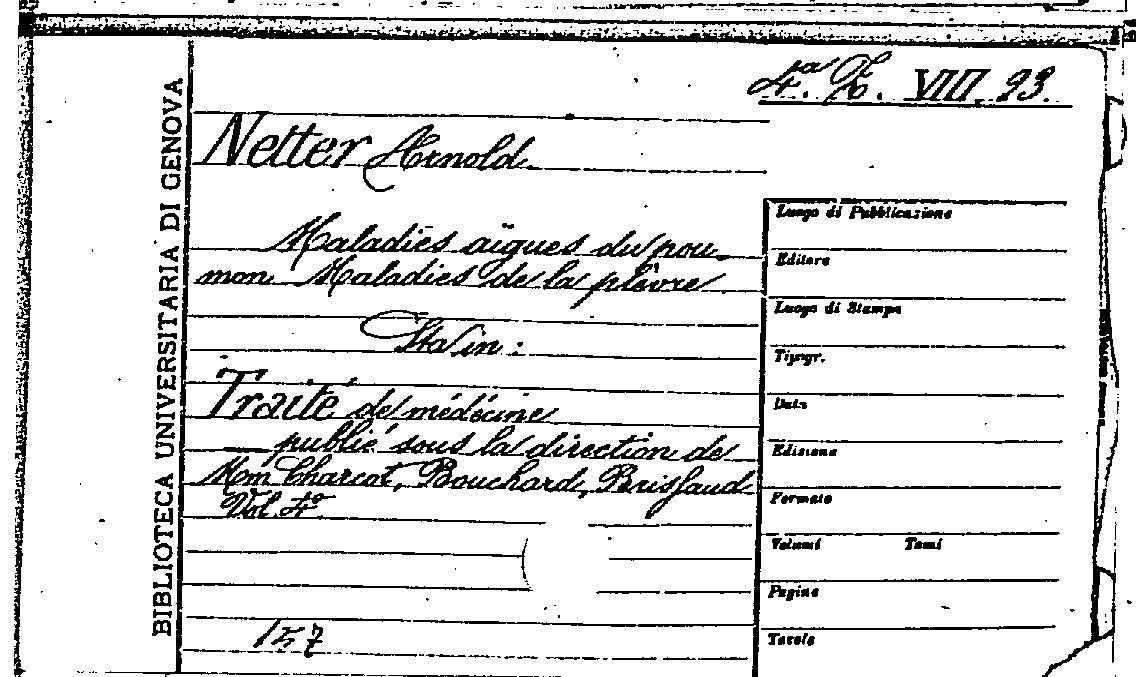 4.ª Z. VIII. 23.
BIBLIOTECA UNIVERSITARIA DI GENOVA
Netter Arnold
Maladies aïgues du pou-
mon. Maladies de la plèvre
Sta in:
Traité de médécine
publié sous la direction de
Mm Charcot, Bouchard, Brissaud
Vol. 4º
157
Luogo di Pubblicazione
Editore
Luogo di Stampa
Tipogr.
Data
Edizione
Formato
Volumi Tomi
Pagine
Tavole